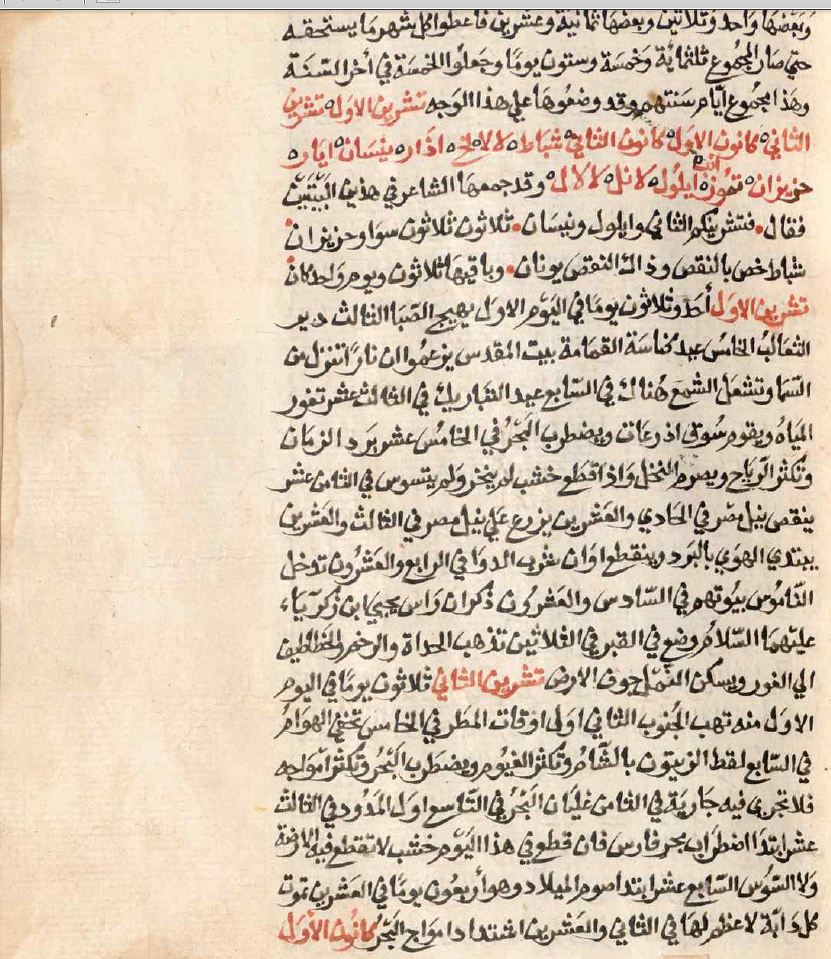 وبعضها واحد وثلاثين وبعضها ثمانية وعشرين فاعطوا كل شهر ما يستحقه
حتي صار المجموع ثلثماية وخمسة وستون يوما وجعلوا الخمسة في اخر السنة
وهذا المجموع ايام سنتهم وقد وضعوها علي هذا الوجه تشرين الاول تشرين
الثاني كانون الاول كانون الثاني شباط لالالح اذار نيسان ايار
اب
حزيران تموز ايلول لانل لالال وقد جمعها الشاعر في هذين البيتين
فقال فتشرينكم الثاني وايلول ونيسان ثلاثون ثلاثون سوا وحزيران
شباط خص بالنقص وذاك النقص يونان وباقيها ثلاثون ويوم واحد كان
تشرين الاول أحد وثلاثون يوما في اليوم الاول يهيج الصبا الثالث دير
الثعالب الخامس عيد كناسة القمامة ببيت المقدس يزعموا ان نارا تنزل من
السما وتشعل الشمع هناك في السابع عيد التباريك في الثالث عشر تغور
المياه ويقوم سوق اذرعات ويضطرب البحر في الخامس عشر برد الزمان
وتكثر الرياح ويصوم النخل واذا قطع خشب لم ينخر ولم يتسوس في الثامن عشر
ينقص نيل مصر في الحادي والعشرين يزرع علي نيل مصر في الثالث والعشرين
يبتدي الهوي بالبرد وينقطع اوان شرب الدوا في الرابع والعشرون تدخل
الناموس بيوتهم في السادس والعشرون ذكران راس يحيي ابن زكرياء
عليهما السلام وضع في القبر في الثلاثين تذهب الحداة والرخم والخطاطيف
الي الغور ويسكن النمل جوف الارض تشرين الثاني ثلاثون يوما في اليوم
الاول منه تهب الجنوب الثاني اول اوقات المطر في الخامس تختفي الهوام
في السابع لقط الزيتون بالشام وتكثر الغيوم ويضطرب البحر وتكثر امواجه
فلا تجري فيه جارية في الثامن غليان البحر في التاسع اول المدود في الثالث
عشر ابتدا اضطراب بحر فارس فان قطع في هذا اليوم خشب لا تقطع فيه الارضة
ولا السوس السابع عشر ابتدا صوم الميلاد وهو أربعون يوما في العشرين تموت
كل دابة لا عظم لها في الثاني والعشرين اشتداد امواج البحر كانون الأول